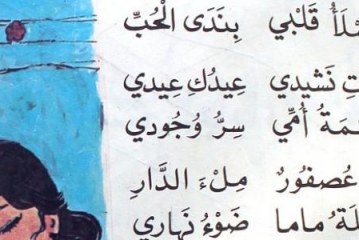 قَلْبِي بِنَدَى الْحُبِّ
نَشِيدِي عِيدُكِ عِيدِي
أُمِّي سِرُّ وُجُودِي
عُصفُورٌ مِلْءَ الدَّارِ
ماما ضَوْءُ نَهَارِي